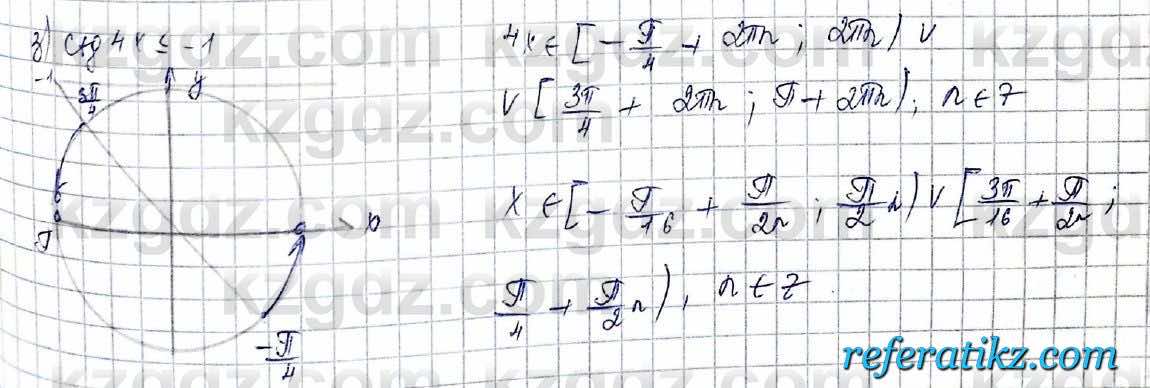 3) ctg 4x ≤ -1
-1
3π/4
y
π
0
-π/4
4x ∈ [-π/4 + 2πn ; 2πn) ∨
∨ [3π/4 + 2πn ; π + 2πn), n ∈ Z
x ∈ [-π/16 + π/2n ; π/2 n) ∨ [3π/16 + π/2n ;
π/4 + π/2 n), n ∈ Z
kzgdz.com
referatikz.com